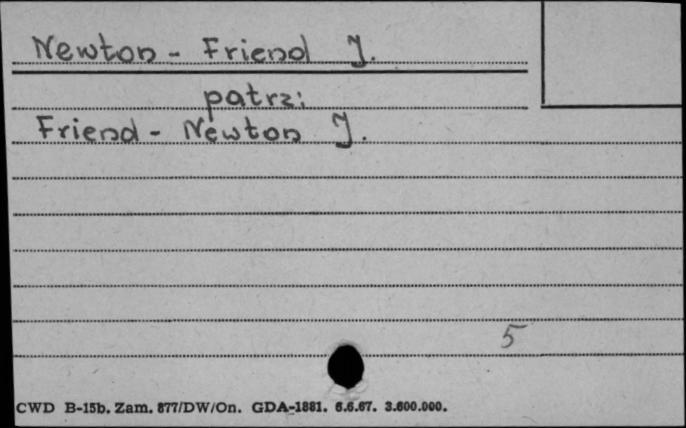 Newton - Friend J.
patrz:
Friend - Newton J.
5
CWD B-15b. Zam. 877/DW/On. GDA-1881. 6.6.67. 3.600.000.